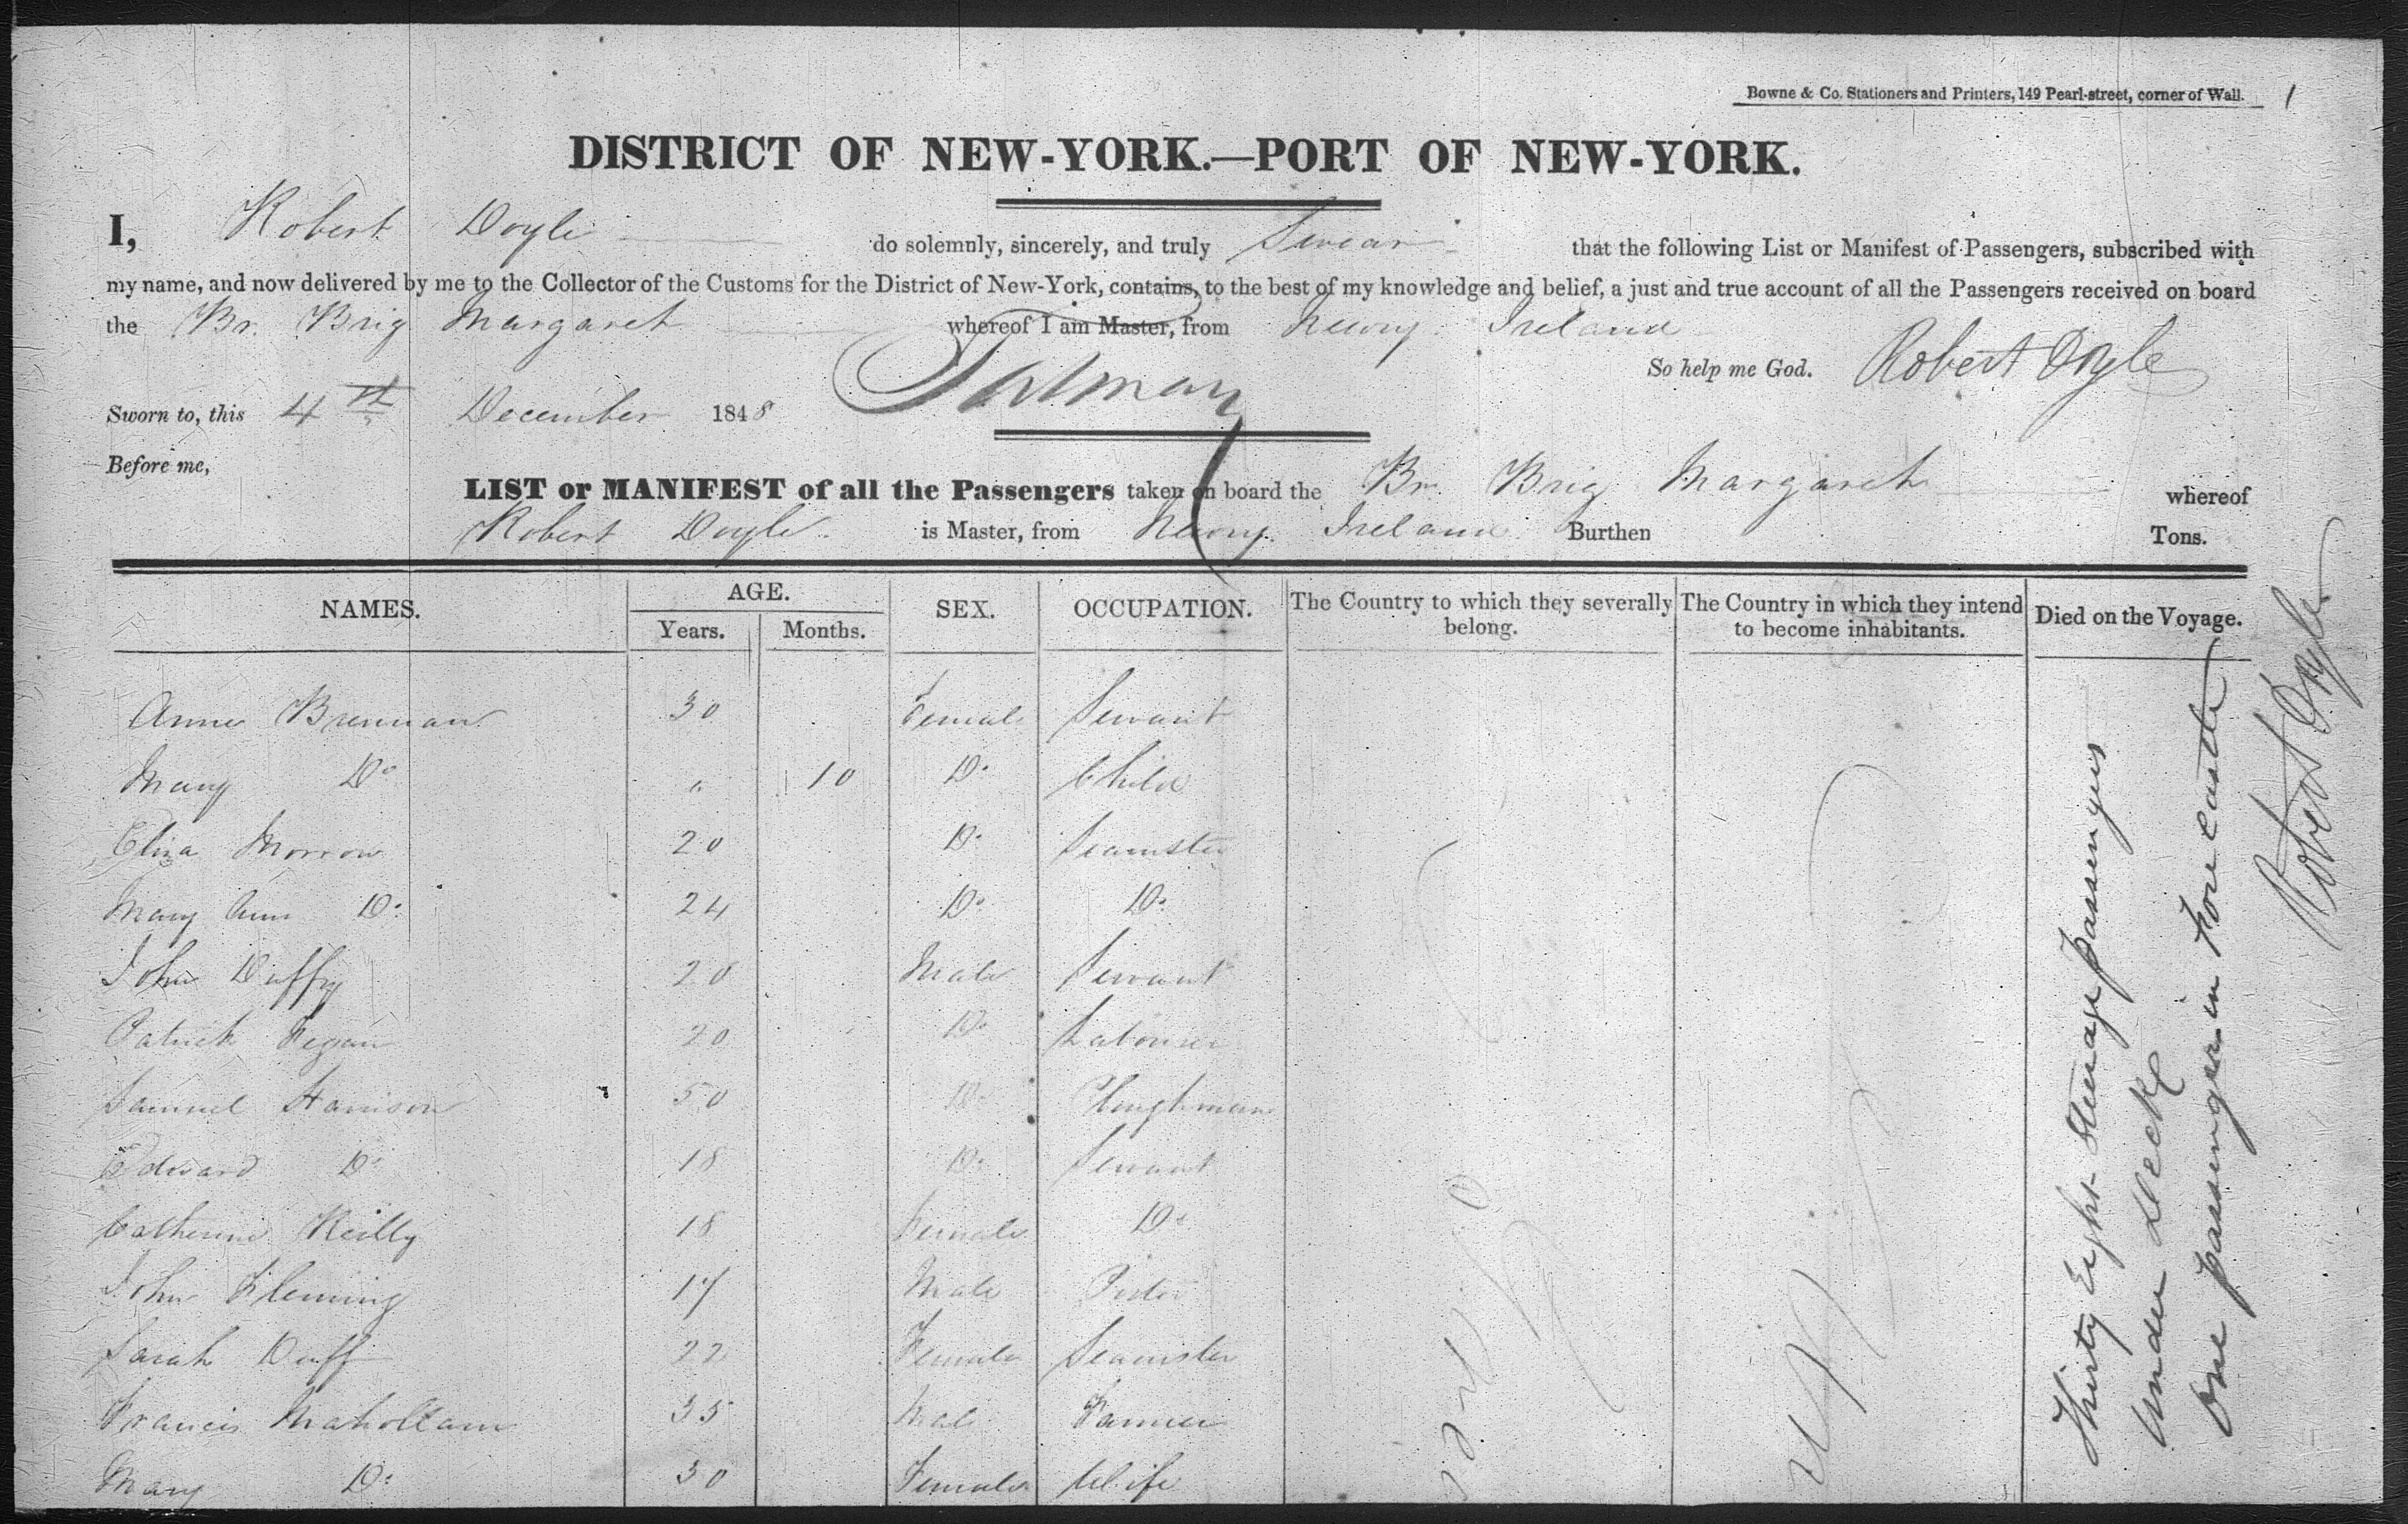 Bowne & Co. Stationers and Printers, 149 Pearl-street, corner of Wall. 1
DISTRICT OF NEW-YORK.—PORT OF NEW-YORK.
I, Robert Doyle do solemnly, sincerely, and truly Swear that the following List or Manifest of Passengers, subscribed with
my name, and now delivered by me to the Collector of the Customs for the District of New-York, contains, to the best of my knowledge and belief, a just and true account of all the Passengers received on board
the Br. Brig Margaret whereof I am Master, from Newry Ireland
So help me God. Robert Doyle
Sworn to, this 4th December 1848
Before me,
LIST or MANIFEST of all the Passengers taken on board the Br. Brig Margaret whereof
Robert Doyle is Master, from Newry Ireland Burthen Tons.
NAMES. AGE. SEX. OCCUPATION. The Country to which they severally belong. The Country in which they intend to become inhabitants. Died on the Voyage.
Years. Months.
Anne Brennan 30 Female Servant
Mary Do 10 Do Child
Eliza Morrow 20 Do Seamster
Mary Ann Do 24 Do Do
John Duffy 20 Male Servant
Patrick Fegan 20 Do Labourer
Samuel Harrison 50 Do Ploughman
Edward Do 18 Do Servant
Catherine Reilly 18 Female Do
John Fleming 17 Male
Sarah Duff 22 Female Seamster
Francis Mahollam 35 Male Farmer
Mary Do 30 Female Wife
Thirty Eight Steerage passengers
Under Deck
One passenger in
Robert Doyle